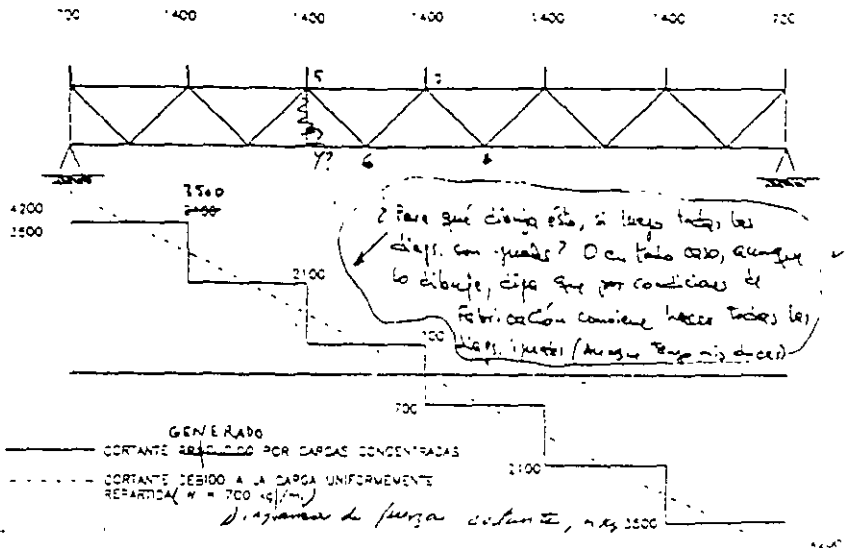 700 1400 1400 1400 1400 1400 700
5 7
Y? 6
3500
4200
3500
2100
¿Para qué dibuja esto, si luego todas las
diags. son iguales? O en todo caso, aunque
lo dibuje, diga que por condiciones de
Fabricación conviene hacer todas las
diags. iguales (Aunque tengo mis dudas)
700
700
GENERADO
CORTANTE PRODUCIDO POR CARGAS CONCENTRADAS
2100
CORTANTE DEBIDO A LA CARGA UNIFORMEMENTE
REPARTIDA (W = 700 kg/m)
Diagramas de fuerza cortante, en kg 3500